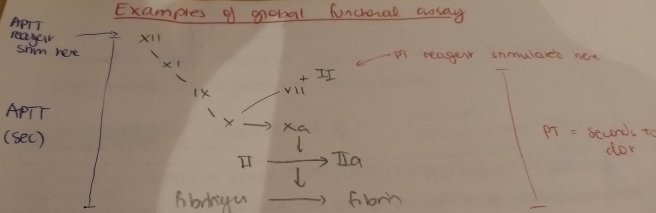 Examples of global functional assay
APTT
reagent
stim here
XII
XI
IX
X → Xa
VII
+ II
PT reagent stimulates here
APTT
(sec)
II → IIa
fibrinogen → fibrin
PT = seconds to
clot